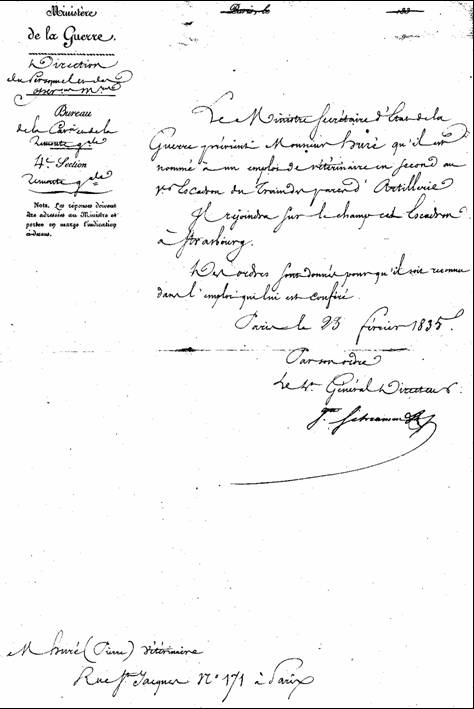 Ministère
de la Guerre.
Paris, le 183
Direction
du Personnel et des
Bureau
de la Cavalerie et de la
Remonte gle
4e Section
Remonte gle
Nota. Les réponses doivent
être adressées au Ministre et
porter en marge l'indication
ci-dessus.
Le Ministre Secrétaire d'Etat de la
Guerre prévient Monsieur huré qu'il est
nommé à un emploi de vétérinaire en second au
Escadron du Train des parcs d'Artillerie
Il rejoindra sur le champ cet Escadron
à Strasbourg.
Des ordres sont donnés pour qu'il soit reconnu
dans l'emploi qui lui est conféré.
Paris le 23 février 1835
Par son ordre
Le Général Directeur.
Schramm
M huré (Pierre) vétérinaire
Rue St Jacques No 171 à Paris